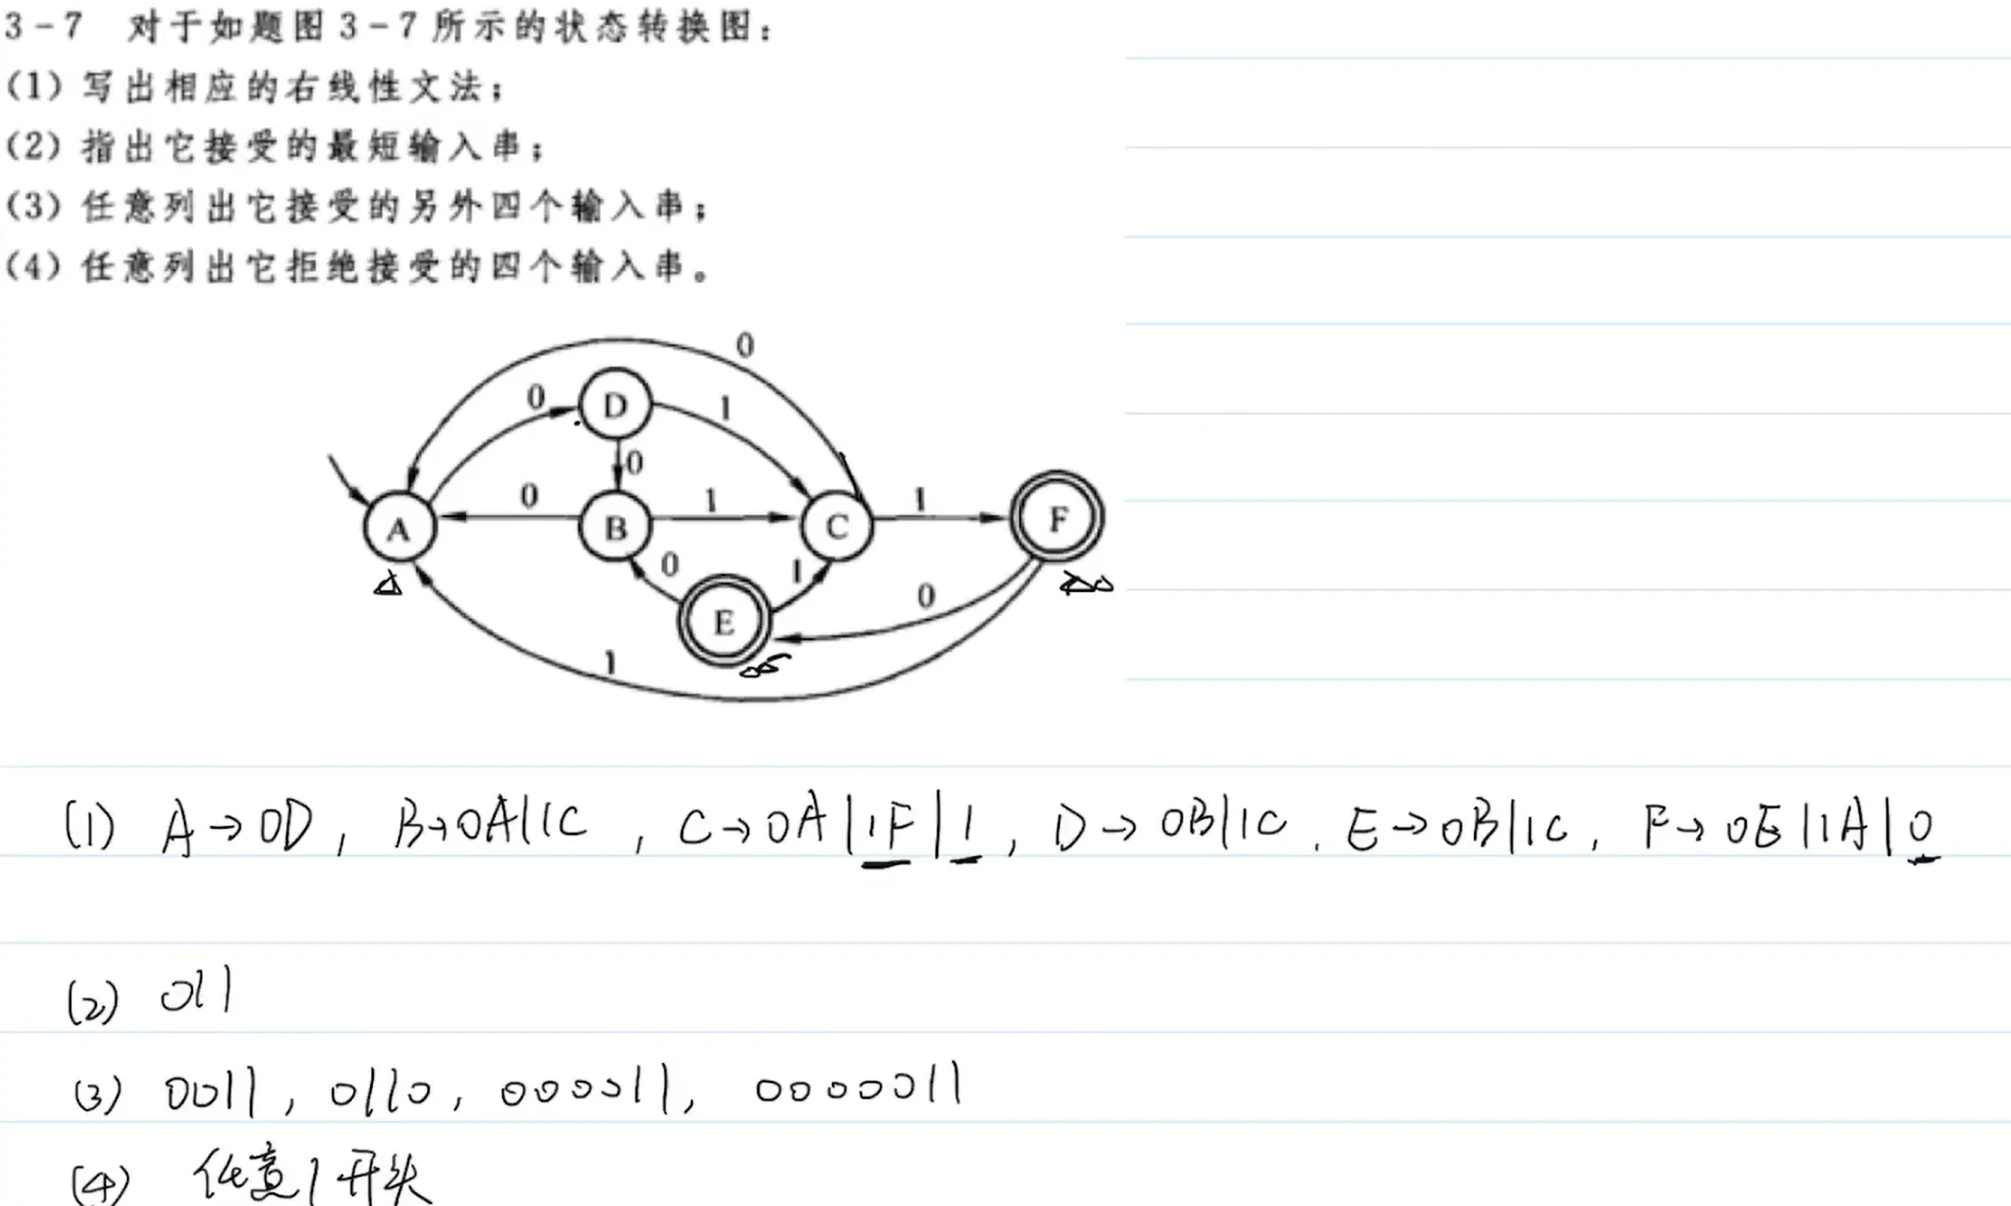 3-7 对于如题图3-7所示的状态转换图：
(1)写出相应的右线性文法；
(2)指出它接受的最短输入串；
(3)任意列出它接受的另外四个输入串；
(4)任意列出它拒绝接受的四个输入串。
0
0 D 1
0
A 0 B 1 C 1 F
0 1
E 0
1
(1) A→0D, B→0A|1C, C→0A|1F|1, D→0B|1C, E→0B|1C, F→0E|1A|0
(2) 011
(3) 0011, 0110, 000011, 0000011
(4) 任意1开头